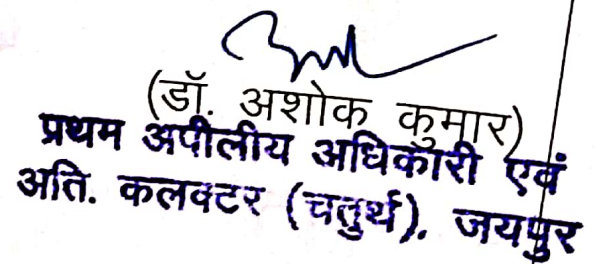 (डॉ. अशोक कुमार)
प्रथम अपीलीय अधिकारी एवं
अति. कलक्टर (चतुर्थ). जयपुर